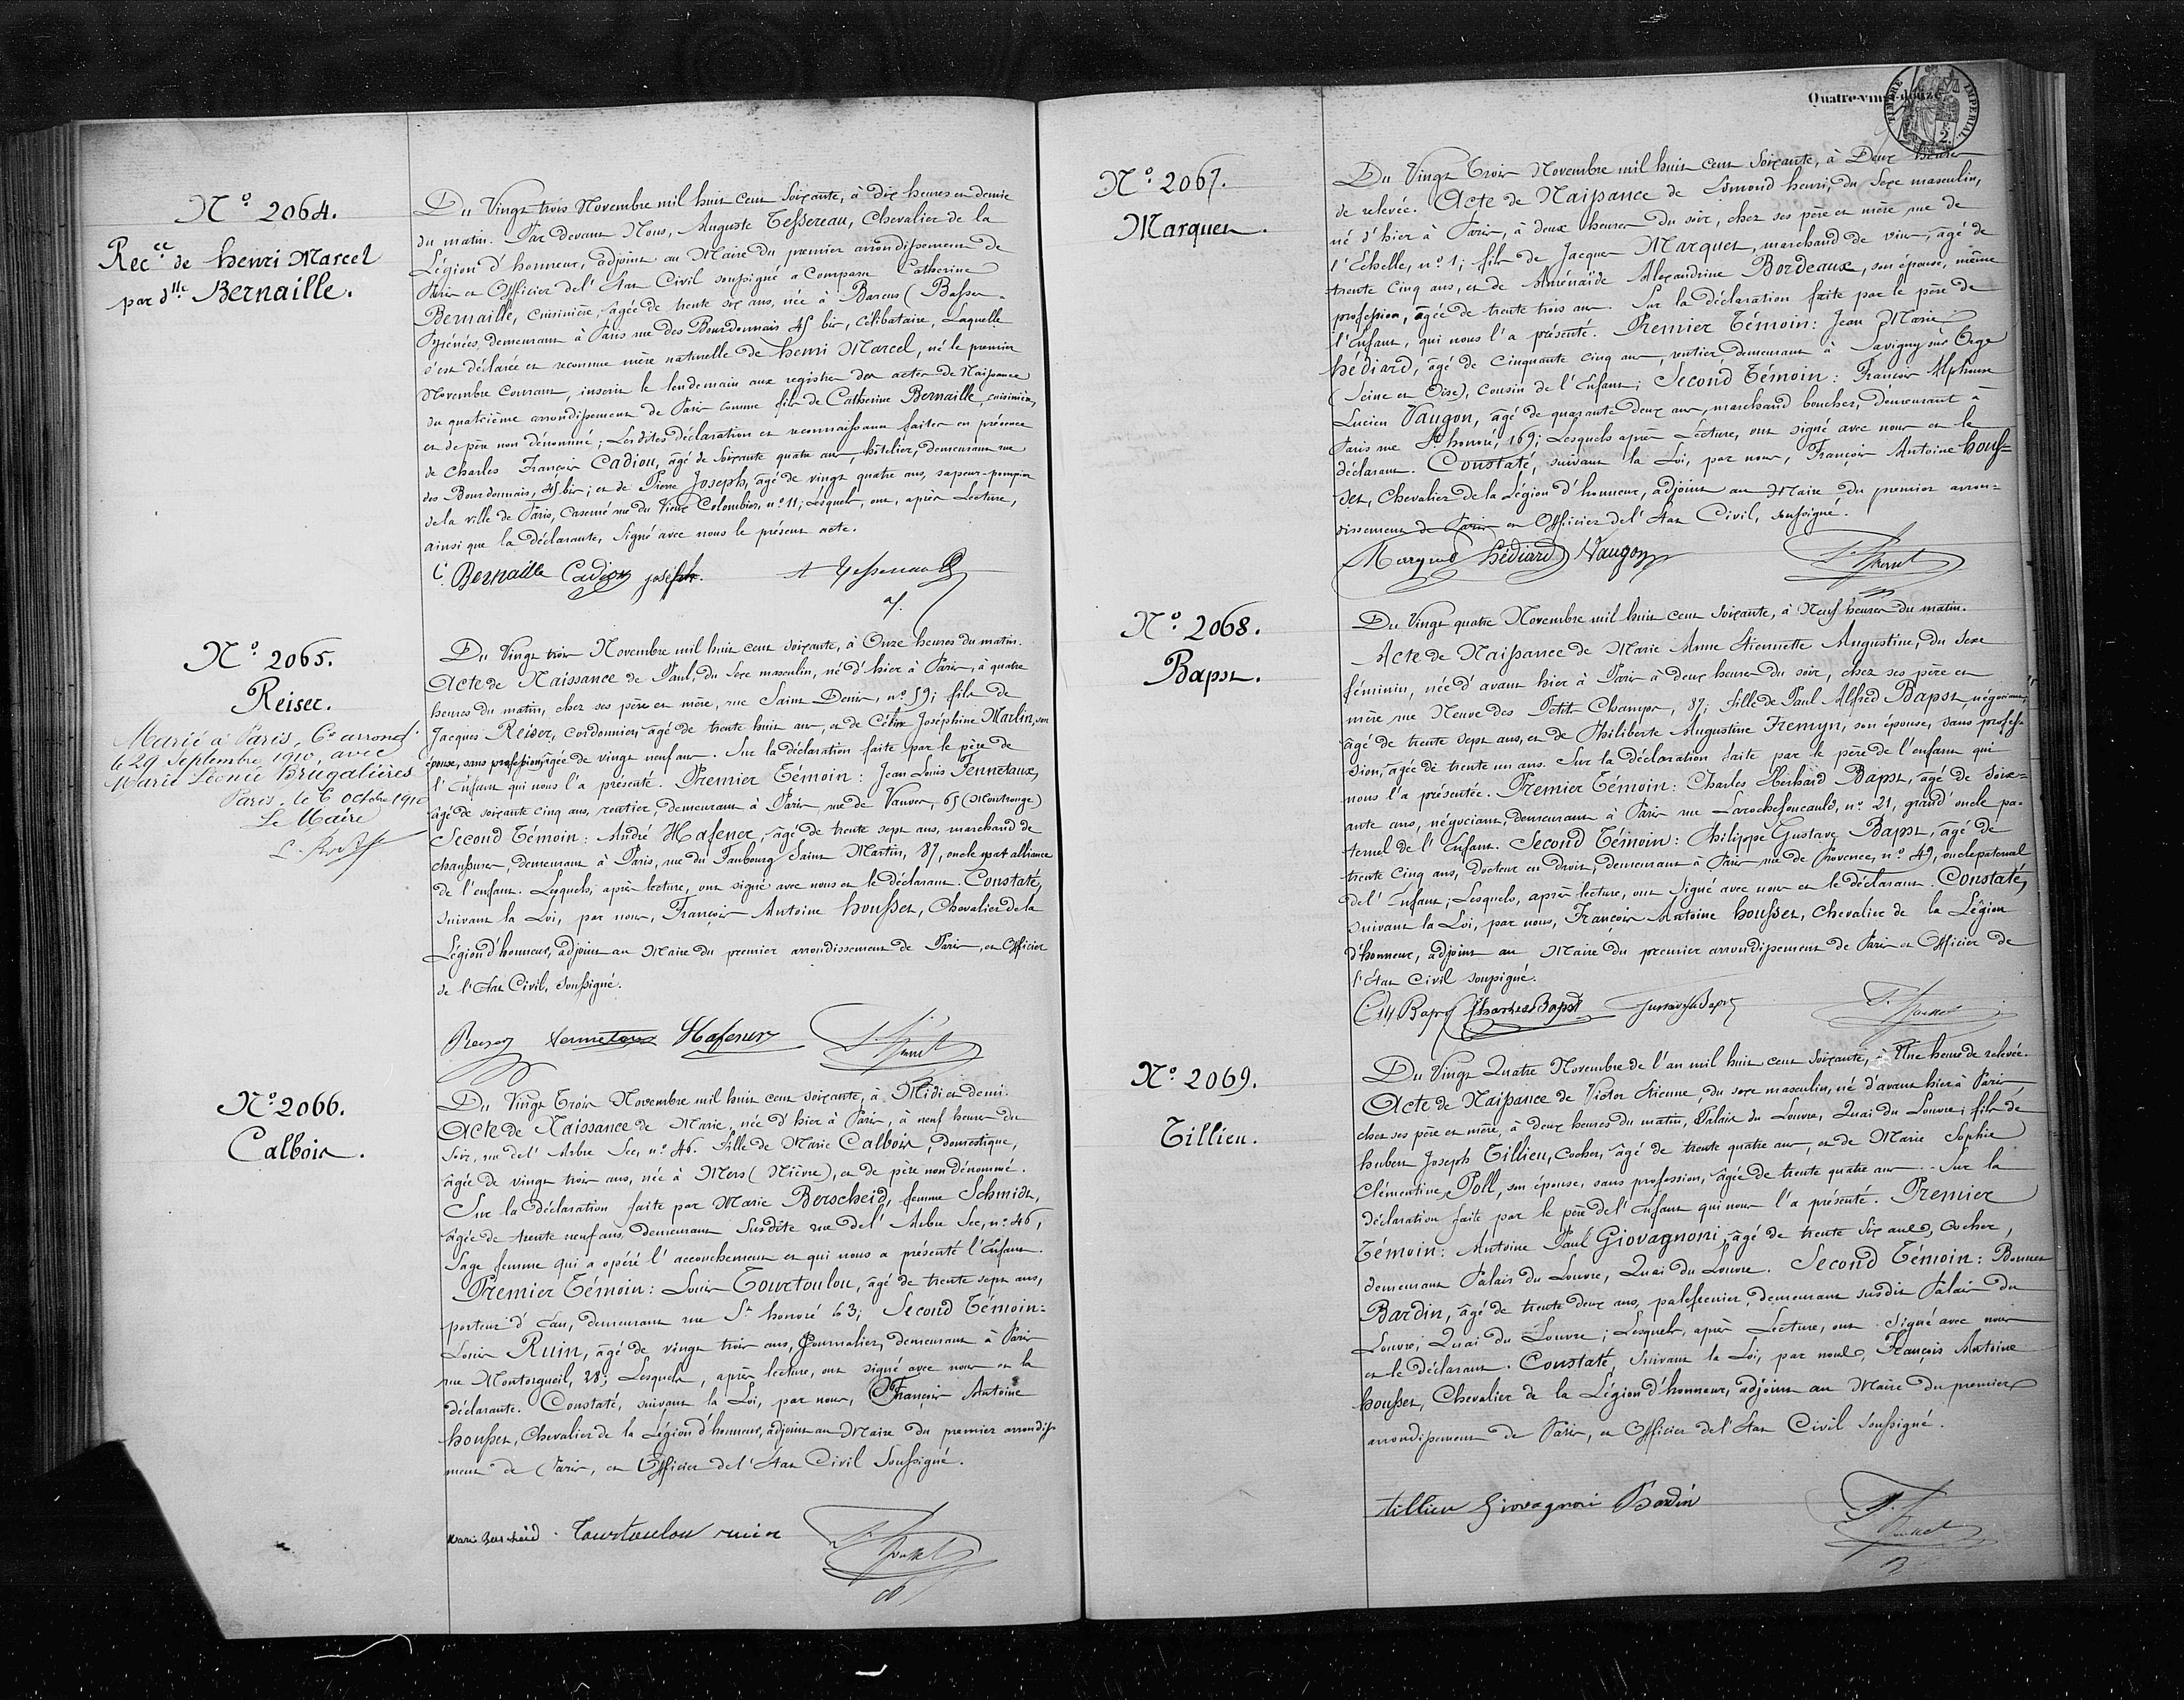 N.º 2064.
Rec.ce de henri Marcel
par d.lle Bernaille.
Du Vingt trois Novembre mil huit cent soixante, à dix heures et demie
du matin. Par devant Nous, Auguste Tessereau, Chevalier de la
Légion d'honneur, adjoint au Maire du premier arrondissement de
Paris et Officier de l'Etat Civil soussigné a comparu Catherine
Bernaille, cuisinière, âgée de trente six ans, née à Barcus (Basses-
Pyrénées, demeurant à Paris rue des Bourdonnais 45 bis, célibataire, Laquelle
s'est déclarée et reconnue mère naturelle de henri Marcel, né le premier
Novembre courant, inscrit le lendemain aux registres des actes de Naissance
du quatrième arrondissement de Paris comme fils de Catherine Bernaille, cuisinière,
et de père non dénommé; Lesdites déclaration et reconnaissance faites en présence
de Charles François Cadiou, âgé de soixante quatre ans, hôtelier, demeurant rue
des Bourdonnais, 45 bis; et de Pierre Joseph, âgé de vingt quatre ans, sapeur-pompier
de la ville de Paris, caserné rue du Vieux Colombier, n.º 11; Lesquels, ont, après Lecture,
ainsi que la déclarante, signé avec nous le présent acte.
C. Bernaille Cadiou joseph. A Tessereau
N.º 2065.
Reiser.
Marié à Paris, 6e arrond.t
le 29 Septembre 1910, avec
Marie Léonie Brugalières
Paris, le 6 octobre 1910
Le Maire
Du Vingt trois Novembre mil huit cent soixante, à Onze heures du matin.
Acte de Naissance de Paul, du sexe masculin, né d'hier à Paris, à quatre
heures du matin, chez ses père et mère, rue Saint Denis, n.º 59; fils de
Jacques Reiser, cordonnier, âgé de trente huit ans, et de Céline Joséphine Marlin, son
épouse, sans profession, âgée de vingt neuf ans. Sur la déclaration faite par le père de
l'Enfant qui nous l'a présenté. Premier Témoin: Jean Louis Fennetaux,
âgé de soixante cinq ans, rentier, demeurant à Paris rue de Vanves, 65 (Montrouge)
Second Témoin: André Hafener, âgé de trente sept ans, marchand de
chaussures, demeurant à Paris, rue du Faubourg Saint Martin, 87, oncle par alliance
de l'enfant. Lesquels, après lecture, ont signé avec nous et le déclarant. Constaté,
suivant la Loi, par nous, François Antoine housset, Chevalier de la
Légion d'honneur, adjoint au Maire du premier arrondissement de Paris, et Officier
de l'Etat Civil, soussigné.
Reiser Fennetaux Hafener
N.º 2066.
Calbois.
Du Vingt Trois Novembre mil huit cent soixante, à Midi et demi.
Acte de Naissance de Marie, née d'hier à Paris, à neuf heures du
soir, rue de l'Arbre Sec, n.º 46. Fille de Marie Calbois, domestique,
âgée de vingt trois ans, née à Mers (Nièvre), et de père non dénommé.
Sur la déclaration faite par Marie Berscheid, femme Schmidt,
âgée de trente neuf ans, demeurant susdite rue de l'Arbre Sec, n.º 46,
Sage femme qui a opéré l'accouchement et qui nous a présenté l'Enfant.
Premier Témoin: Louis Tourtoulou, âgé de trente sept ans,
porteur d'eau, demeurant rue St. honoré 63; Second Témoin:
Louis Ruin, âgé de vingt trois ans, Journalier, demeurant à Paris
rue Montorgueil, 28; Lesquels, après lecture, ont signé avec nous et la
déclarante. Constaté, suivant la Loi, par nous, François Antoine
housset, Chevalier de la Légion d'honneur, adjoint au Maire du premier arrondisse
ment de Paris, et Officier de l'Etat Civil soussigné.
Marie Berscheid. Tourtoulou ruin
Quatre-vingt-douze
TIMBRE IMPERIAL
N.º 2067.
Marquet.
Du Vingt Trois Novembre mil huit cent soixante, à Deux heures
de relevée. Acte de Naissance de Edmond henri, du sexe masculin,
né d'hier à Paris, à deux heures du soir, chez ses père et mère rue de
l'Echelle, n.º 1; fils de Jacques Marquet, marchand de vin, âgé de
trente cinq ans, et de Aménaïde Alexandrine Bordeaux, son épouse, même
profession, âgée de trente trois ans. Sur la déclaration faite par le père de
l'Enfant, qui nous l'a présenté. Premier Témoin: Jean Marie
hédiard, âgé de cinquante cinq ans, rentier, demeurant à Savigny sur Orge
(Seine et Oise), cousin de l'Enfant; Second Témoin: François Alphonse
Lucien Vaugon, âgé de quarante deux ans, marchand boucher, demeurant à
Paris rue St. honoré, 169; Lesquels après Lecture, ont signé avec nous et le
déclarant. Constaté, suivant la Loi, par nous, François Antoine hous=
set, Chevalier de la Légion d'honneur, adjoint au Maire du premier arron=
dissement de Paris et Officier de l'Etat Civil, soussigné.
Marquet hédiard Vaugon
N.º 2068.
Bapst.
Du Vingt quatre Novembre mil huit cent soixante, à Neuf heures du matin.
Acte de Naissance de Marie Anne Etiennette Augustine, du sexe
féminin, née d'avant hier à Paris à deux heures du soir, chez ses père et
mère rue Neuve des Petits Champs, 87; fille de Paul Alfred Bapst, négociant,
âgé de trente sept ans, et de Philiberte Augustine Fremyn, son épouse, sans profes
sion, âgée de trente un ans. Sur la déclaration faite par le père de l'enfant qui
nous l'a présentée. Premier Témoin: Charles Bapst, âgé de soix=
ante ans, négociant, demeurant à Paris rue Larochefoucauld, n.º 21, grand'oncle pa-
ternel de l'Enfant. Second Témoin: Philippe Gustave Bapst, âgé de
trente cinq ans, Docteur en Droit, demeurant à Paris rue de Provence, n.º 49, oncle paternel
de l'Enfant; Lesquels, après lecture, ont signé avec nous et le déclarant. Constaté,
suivant la Loi, par nous, François Antoine housset, Chevalier de la Légion
d'honneur, adjoint au Maire du premier arrondissement de Paris et Officier de
l'Etat Civil soussigné.
Bapst Charles Bapst Gustave Bapst
N.º 2069.
Tillieu.
Du Vingt Quatre Novembre de l'an mil huit cent soixante, à Une heure de relevée.
Acte de Naissance de Victor Etienne, du sexe masculin, né d'avant hier à Paris,
chez ses père et mère, à deux heures du matin, Palais du Louvre, Quai du Louvre; fils de
hubert Joseph Tillieu, Cocher, âgé de trente quatre ans, et de Marie Sophie
Clémentine Poll, son épouse, sans profession, âgée de trente quatre ans. Sur la
déclaration faite par le père de l'Enfant qui nous l'a présenté. Premier
Témoin: Antoine Paul Giovagnoni, âgé de trente six ans, Cocher,
demeurant Palais du Louvre, Quai du Louvre. Second Témoin: Bonnet
Bardin, âgé de trente deux ans, palefrenier, demeurant susdit Palais du
Louvre, Quai du Louvre; Lesquels, après Lecture, ont signé avec nous
et le déclarant. Constaté, suivant la Loi, par nous, François Antoine
housset, Chevalier de la Légion d'honneur, adjoint au Maire du premier
arrondissement de Paris, et Officier de l'Etat Civil soussigné.
tillieu Giovagnoni Bardin